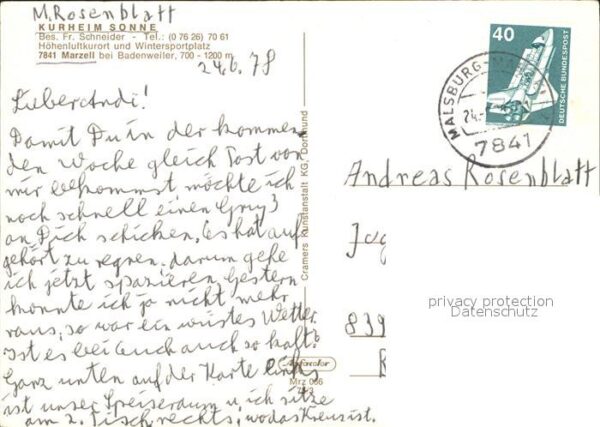 M. Rosenblatt
KURHEIM SONNE
Bes. Fr. Schneider - Tel.: (0 76 26) 70 61
Höhenluftkurort und Wintersportplatz
7841 Marzell bei Badenweiler, 700 - 1200 m
24.6.78
Lieber Andi!
Damit Du in der kommen
den Woche gleich Post von
mir bekommst möchte ich
noch schnell einen Gruß
an Dich schicken. Es hat auf
gehört zu regnen. darum gehe
ich jetzt spazieren. Gestern
konnte ich ja nicht mehr
raus, so war ein wüstes Wetter.
Ist es bei Euch auch so kalt?
Ganz unten auf der Karte links
ist unser Speiseraum u. ich sitze
am 2. Tisch rechts, wo das Kreuz ist.
Cramers Kunstanstalt KG, Dortmund
Mrz 066
40
DEUTSCHE BUNDESPOST
MALSBURG-MA
24.-
7841
Andreas Rosenblatt
Jug
839
privacy protection
Datenschutz